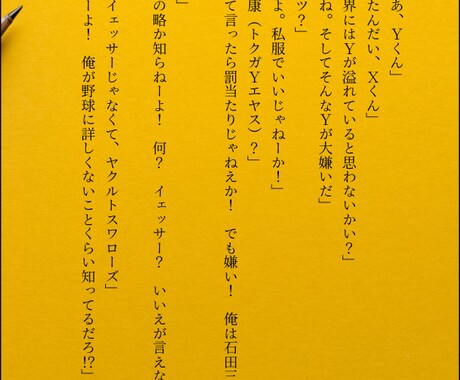 あ、Yくん」
たんだい、Xくん」
界にはYが溢れていると思わないかい？」
ね。そしてそんなYが大嫌いだ」
ツ？」
よ。私服でいいじゃねーか！」
康（トクガYエヤス）？」
て言ったら罰当たりじゃねえか！　でも嫌い！　俺は石田三
」
の略か知らねーよ！　何？　イェッサー？　いいえが言えな
イェッサーじゃなくて、ヤクルトスワローズ」
ーよ！　俺が野球に詳しくないことくらい知ってるだろ!?」